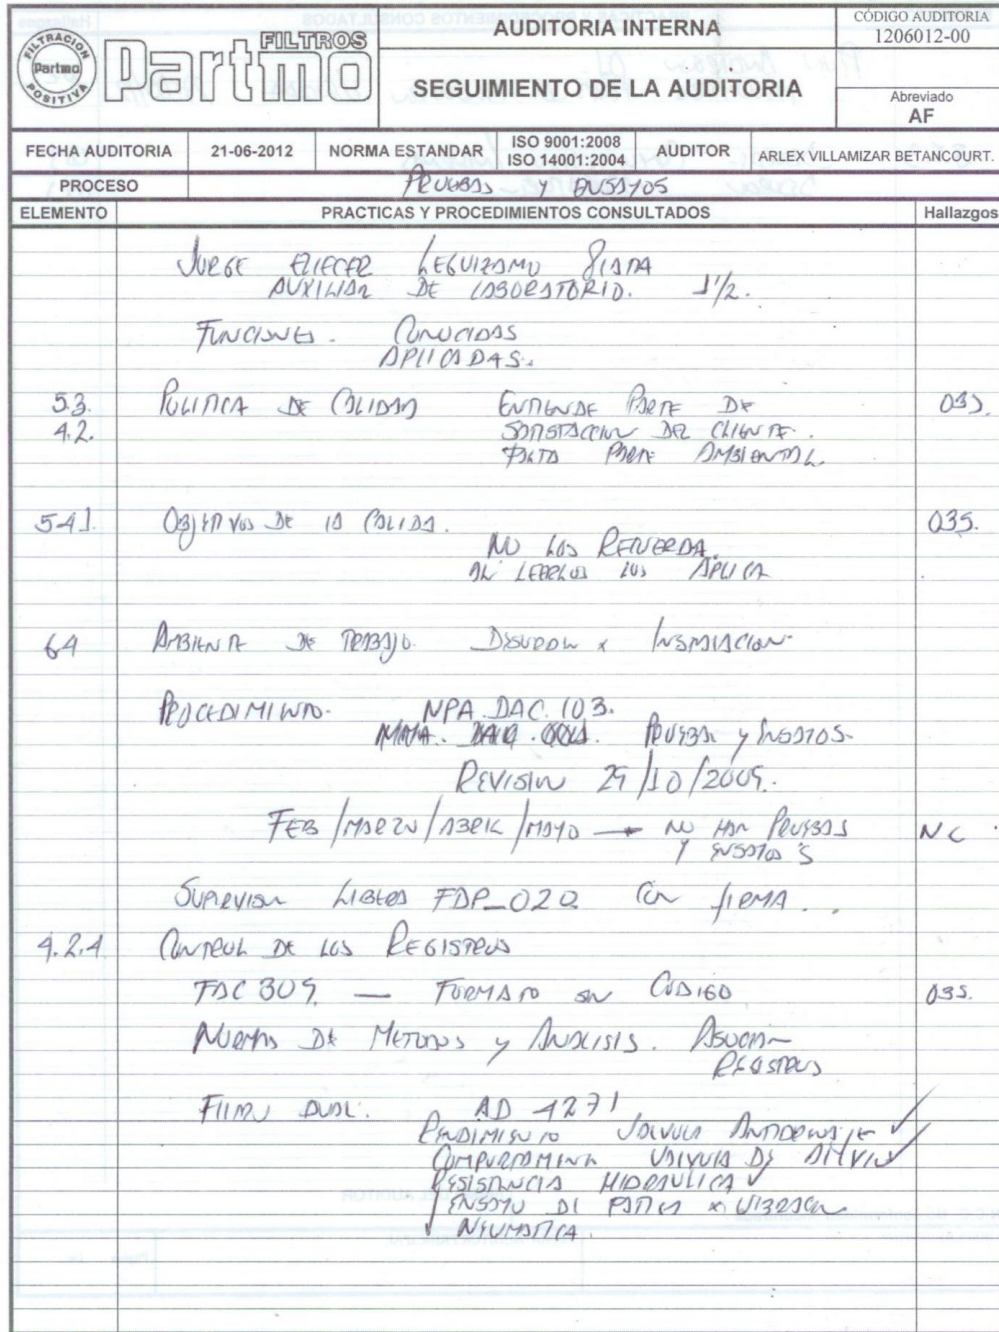 FILTRACION Partmo POSITIVA
Partmo FILTROS
AUDITORIA INTERNA
SEGUIMIENTO DE LA AUDITORIA
CÓDIGO AUDITORIA
1206012-00
Abreviado
AF
FECHA AUDITORIA 21-06-2012 NORMA ESTANDAR ISO 9001:2008 ISO 14001:2004 AUDITOR ARLEX VILLAMIZAR BETANCOURT.
PROCESO PRUEBAS Y ENSAYOS
ELEMENTO PRACTICAS Y PROCEDIMIENTOS CONSULTADOS Hallazgos
JORGE ELIECER LEGUIZAMO
AUXILIAR DE LABORATORIO. 1 1/2.
FUNCIONES. CONOCIDAS
APLICADAS.
5.3. POLITICA DE CALIDAD ENTIENDE PARTE DE OBS.
4.2. SATISFACCION DEL CLIENTE.
FALTA PARTE AMBIENTAL.
5.4.1. OBJETIVOS DE LA CALIDA. OBS.
NO LOS RECUERDA.
AL LEERLOS LOS APLICA
6.4 AMBIENTE DE TRABAJO. x INSTALACION
PROCEDIMIENTO. NPA.DAC.103.
PRUEBAS y ENSAYOS.
REVISION 29/10/2009.
FEB/MARZO/ABRIL/MAYO → NO HAN PRUEBAS NC
Y ENSAYOS
SUPERVISION LIBERA FDP-020 CON FIRMA.
4.2.4 CONTROL DE LOS REGISTROS
FAC 309 — FORMATO SIN CODIGO OBS.
NORMAS DE METODOS y ANALISIS. ASOCIAN
REGISTROS
FILTRO DUAL. AD 4271
RENDIMIENTO VALVULA ANTIDRENAJE ✓
COMPORTAMIENTO VALVULA DE ALIVIO ✓
RESISTENCIA HIDRAULICA ✓
ENSAYO DE FATIGA x VIBRACION
✓ NEUMATICA.